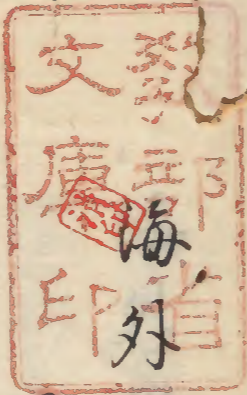 教部省
文庫印
海外